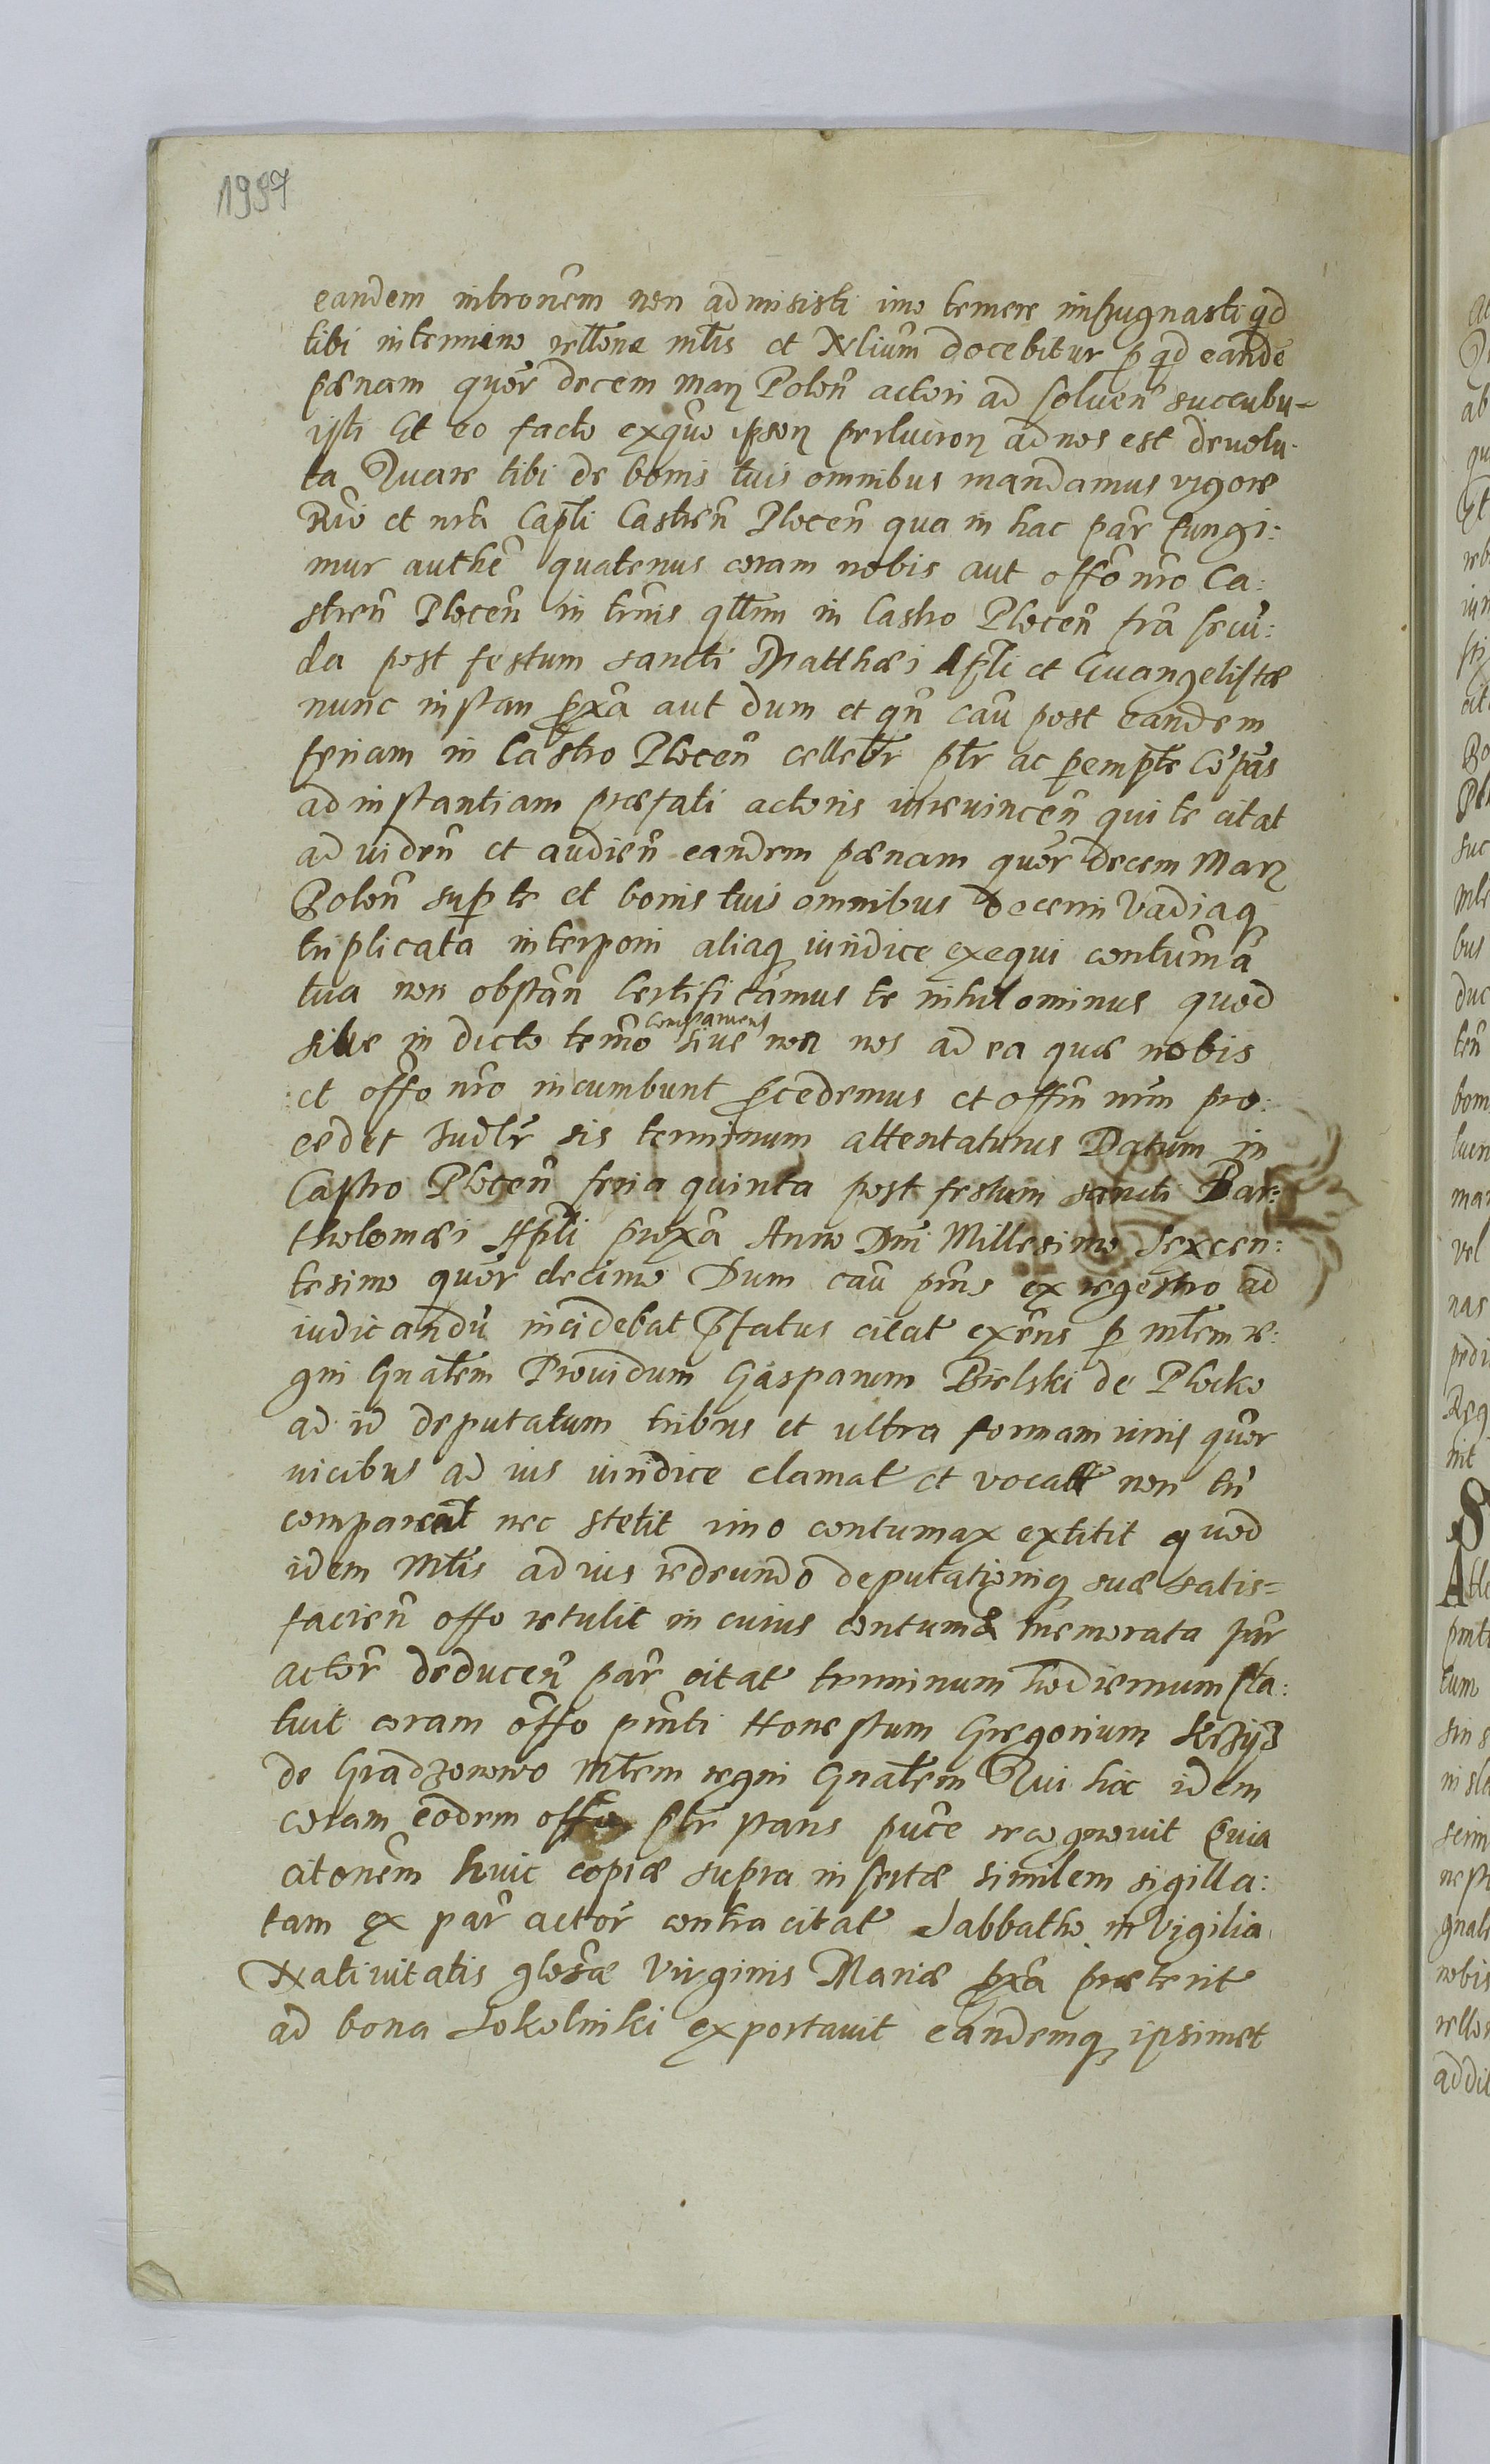 1997
eandem intronem̃ non admisisti imo temere impugnasti qd
tibi in termino relłone mlis et Nlium̃ docebitur p qd eande
pænam quor̃ decem mar Polon̄ actori ad soluen̄ succubu-
isti Et eo facto exquo ipsor ad nos est deuolu-
ta Quare tibi de bonis tuis omnibus mandamus vigore
et nrã Capłi Castren̄ Plocen̄ qua in hac par̃ fungi:
mur authẽ quatenus coram nobis aut offo nro Ca:
stren̄ Plocen̄ in trnis qłłim in Castro Plocen̄ fra secũ:
da post festum sancti Matthæi Apłi et Euangelistæ
nunc instan pxã aut dum et qñ cau post eandem
feriam in Castro Plocen̄ cellebr̃ płr ac pempłe Cõpãs
ad instantiam præfati actoris iure vincen̄ qui te citat
ad viden̄ et audien̄ eandem pænam quor̃ decem Mar
Polon̄ sup te et bonis tuis omnibus decerni Vadiaq
triplicata interponi aliaq iuridice exequi contumã
tua non obstan̄ Certificamus te nihilominus quod
siue in dicto termo compareas siue non nos ad ea quæ nobis
et offo nro incumbunt pcedemus et offm nrm pro:
cedet Judlr̃ sis terminum attentaturus Datum in
Castro Plocen̄ feria quinta post festum sancti Bar:
tholomæi Apłi proxã Anno Dni Millesimo sexcen:
tesimo quor̃ decimo Dum cau pñs ex regestro ad
iudicandũ incidebat Pfatus citat̃ exẽns p młem re:
gni Gnałem Prouidum Gasparum Bielski de Plocko
ad id deputatum tribus et ultra formam iuris quor̃
vicibus ad ius iuridice clamat̃ et vocatt̃ non tñ
comparuit nec stetit imo contumax extitit quod
idem młis ad ius redeundo deputationiq suæ satis=
facien̄ offo retulit in cuius contumã memorata par̃
actor̃ deducen̄ par̃ citat̃ terminum hodiernum sta:
tuit coram offo pñti Honestum Gregorium
de Gradzonowo młem regni Gnałem Qui hic idem
coram eodem offo płr stans pure recognouit Quia
citonem̃ huic copiæ supra insertæ similem sigilla:
tam ex par̃ actor̃ contra citat̃ Sabbatho in Vigilia
Natiuitatis glosæ Virginis Mariæ pxã præterit̃
ad bona Sokolniki exportauit eandemq ipsimet